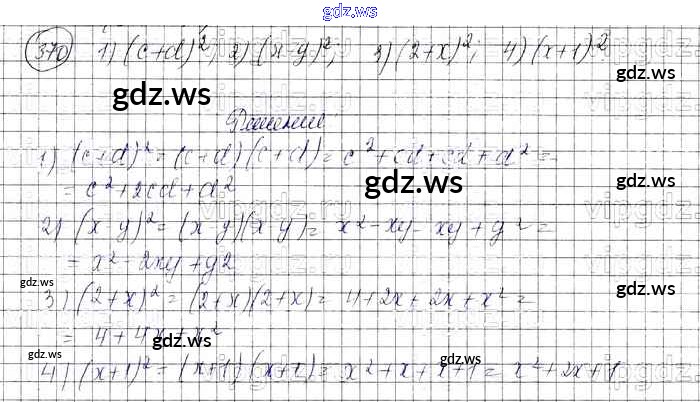 gdz.ws
370 1) (c+d)²; 2) (x-y)²; 3) (2+x)²; 4) (x+1)²
gdz.ws
gdz.ws
Решение
1) (c+d)² = (c+d)(c+d) = c²+cd+cd+d² =
gdz.ws
gdz.ws
= c²+2cd+d²
vipgdz.ru
2) (x-y)² = (x-y)(x-y) = x²-xy-xy+y² =
= x²-2xy+y²
gdz.ws
gdz.ws
3) (2+x)² = (2+x)(2+x) = 4+2x+2x+x² =
= 4+4x+x²
gdz.ws
gdz.ws
gdz.ws
4) (x+1)² = (x+1)(x+1) = x²+x+x+1 = x²+2x+1